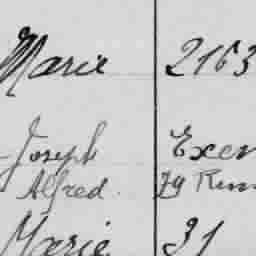 Marie 2163
Joseph Exem
Alfred.
Marie 31